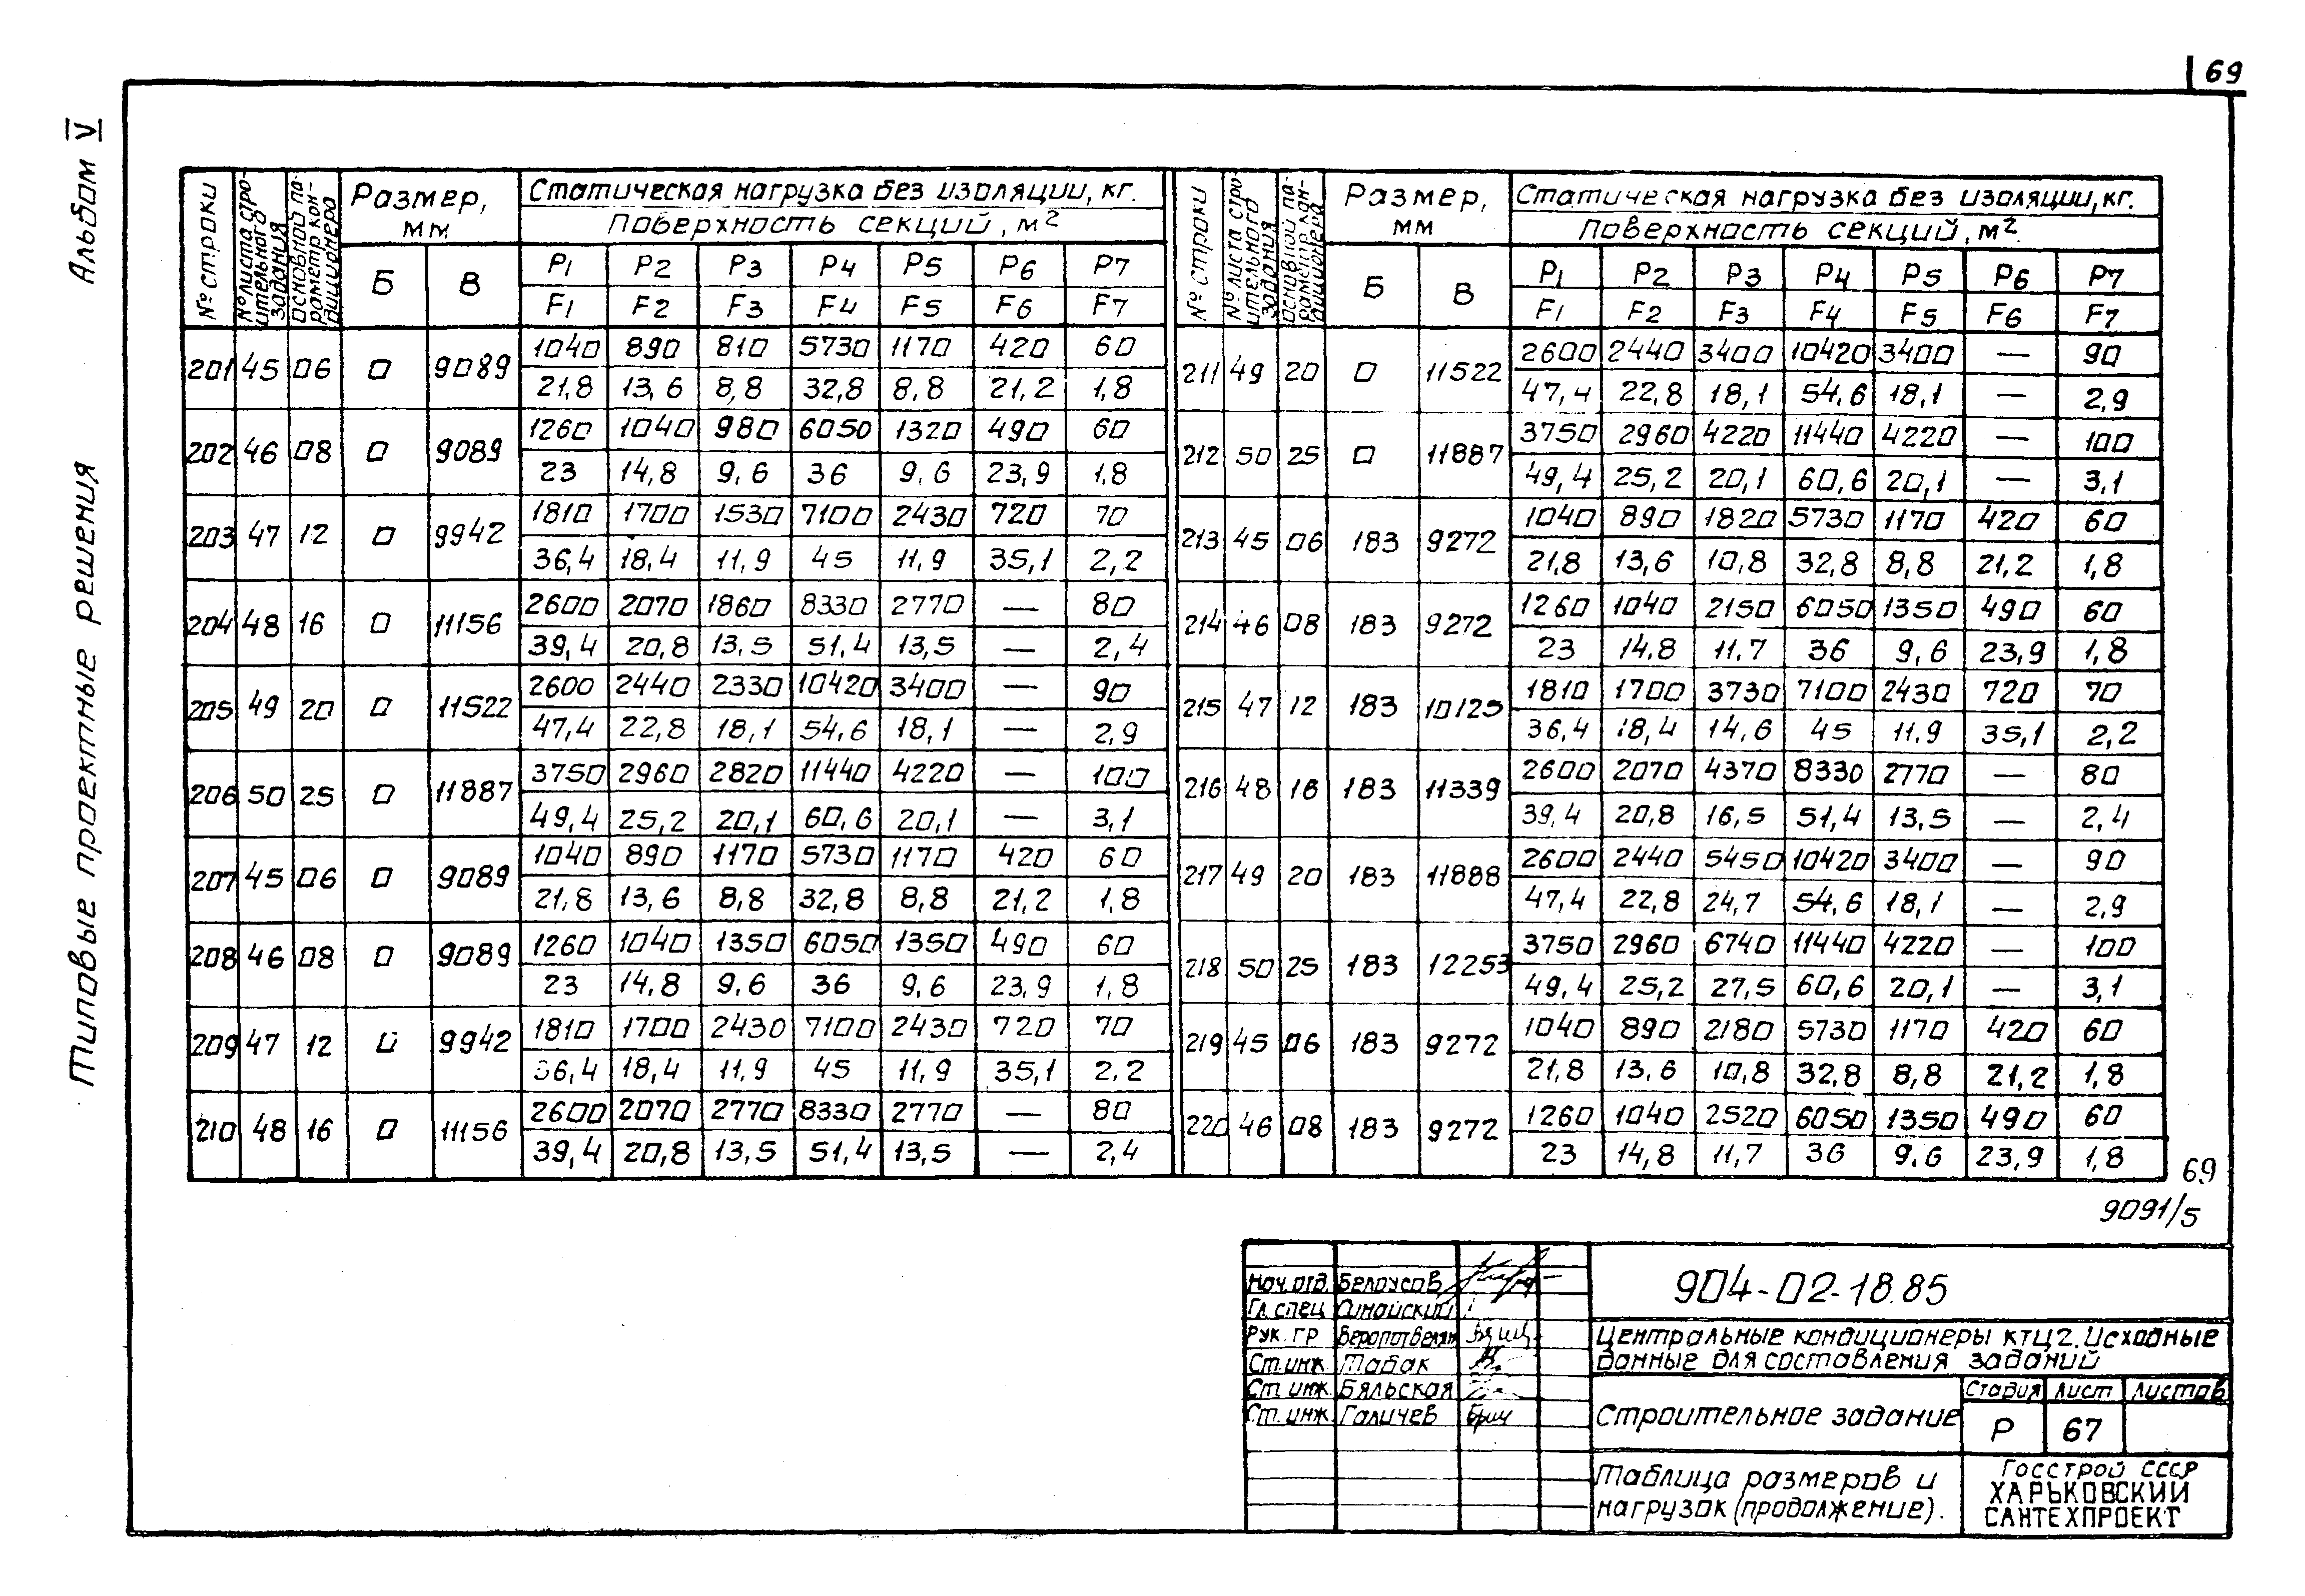 69
Альбом V
Типовые проектные решения
№ строки | № листа стро-ительного задания | Основной па-раметр кон-диционера | Размер, мм | Статическая нагрузка без изоляции, кг.
Поверхность секций, м²
Б | В | P1 | P2 | P3 | P4 | P5 | P6 | P7
F1 | F2 | F3 | F4 | F5 | F6 | F7
201 | 45 | 06 | 0 | 9089 | 1040 | 890 | 810 | 5730 | 1170 | 420 | 60
21,8 | 13,6 | 8,8 | 32,8 | 8,8 | 21,2 | 1,8
202 | 46 | 08 | 0 | 9089 | 1260 | 1040 | 980 | 6050 | 1320 | 490 | 60
23 | 14,8 | 9,6 | 36 | 9,6 | 23,9 | 1,8
203 | 47 | 12 | 0 | 9942 | 1810 | 1700 | 1530 | 7100 | 2430 | 720 | 70
36,4 | 18,4 | 11,9 | 45 | 11,9 | 35,1 | 2,2
204 | 48 | 16 | 0 | 11156 | 2600 | 2070 | 1860 | 8330 | 2770 | — | 80
39,4 | 20,8 | 13,5 | 51,4 | 13,5 | — | 2,4
205 | 49 | 20 | 0 | 11522 | 2600 | 2440 | 2330 | 10420 | 3400 | — | 90
47,4 | 22,8 | 18,1 | 54,6 | 18,1 | — | 2,9
206 | 50 | 25 | 0 | 11887 | 3750 | 2960 | 2820 | 11440 | 4220 | — | 100
49,4 | 25,2 | 20,1 | 60,6 | 20,1 | — | 3,1
207 | 45 | 06 | 0 | 9089 | 1040 | 890 | 1170 | 5730 | 1170 | 420 | 60
21,8 | 13,6 | 8,8 | 32,8 | 8,8 | 21,2 | 1,8
208 | 46 | 08 | 0 | 9089 | 1260 | 1040 | 1350 | 6050 | 1350 | 490 | 60
23 | 14,8 | 9,6 | 36 | 9,6 | 23,9 | 1,8
209 | 47 | 12 | 0 | 9942 | 1810 | 1700 | 2430 | 7100 | 2430 | 720 | 70
36,4 | 18,4 | 11,9 | 45 | 11,9 | 35,1 | 2,2
210 | 48 | 16 | 0 | 11156 | 2600 | 2070 | 2770 | 8330 | 2770 | — | 80
39,4 | 20,8 | 13,5 | 51,4 | 13,5 | — | 2,4
№ строки | № листа стро-ительного задания | Основной па-раметр кон-диционера | Размер, мм | Статическая нагрузка без изоляции, кг.
Поверхность секций, м²
Б | В | P1 | P2 | P3 | P4 | P5 | P6 | P7
F1 | F2 | F3 | F4 | F5 | F6 | F7
211 | 49 | 20 | 0 | 11522 | 2600 | 2440 | 3400 | 10420 | 3400 | — | 90
47,4 | 22,8 | 18,1 | 54,6 | 18,1 | — | 2,9
212 | 50 | 25 | 0 | 11887 | 3750 | 2960 | 4220 | 11440 | 4220 | — | 100
49,4 | 25,2 | 20,1 | 60,6 | 20,1 | — | 3,1
213 | 45 | 06 | 183 | 9272 | 1040 | 890 | 1820 | 5730 | 1170 | 420 | 60
21,8 | 13,6 | 10,8 | 32,8 | 8,8 | 21,2 | 1,8
214 | 46 | 08 | 183 | 9272 | 1260 | 1040 | 2150 | 6050 | 1350 | 490 | 60
23 | 14.8 | 11,7 | 36 | 9,6 | 23,9 | 1,8
215 | 47 | 12 | 183 | 10125 | 1810 | 1700 | 3730 | 7100 | 2430 | 720 | 70
36,4 | 18,4 | 14,6 | 45 | 11.9 | 35,1 | 2,2
216 | 48 | 16 | 183 | 11339 | 2600 | 2070 | 4370 | 8330 | 2770 | — | 80
39,4 | 20,8 | 16,5 | 51,4 | 13,5 | — | 2,4
217 | 49 | 20 | 183 | 11888 | 2600 | 2440 | 5450 | 10420 | 3400 | — | 90
47,4 | 22,8 | 24,7 | 54,6 | 18,1 | — | 2,9
218 | 50 | 25 | 183 | 12253 | 3750 | 2960 | 6740 | 11440 | 4220 | — | 100
49,4 | 25,2 | 27,5 | 60,6 | 20,1 | — | 3,1
219 | 45 | 06 | 183 | 9272 | 1040 | 890 | 2180 | 5730 | 1170 | 420 | 60
21,8 | 13,6 | 10,8 | 32,8 | 8,8 | 21,2 | 1,8
220 | 46 | 08 | 183 | 9272 | 1260 | 1040 | 2520 | 6050 | 1350 | 490 | 60
23 | 14,8 | 11,7 | 36 | 9.6 | 23,9 | 1,8
69
9091/5
Нач.отд. Белоусов
Гл.спец Синайский
Рук.гр
Ст.инж Табак
Ст.инж. Бяльская
Ст.инж. Галичев
904-02-18.85
Центральные кондиционеры КТЦ2. Исходные
данные для составления заданий
Строительное задание
Стадия | Лист | Листов
Р | 67
Таблица размеров и
нагрузок (продолжение).
Госстрой СССР
ХАРЬКОВСКИЙ
САНТЕХПРОЕКТ